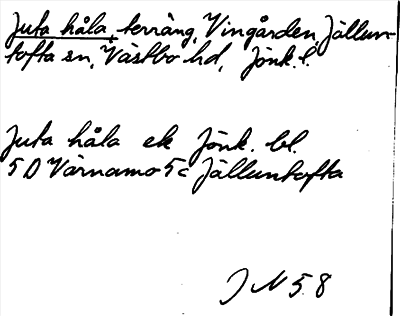 Juta håla, terräng, Vingården, Jällun-
tofta sn, Västbo hd, Jönk. l.
Juta håla ek Jönk. bl.
5D Värnamo 5c Jälluntofta
J N 58